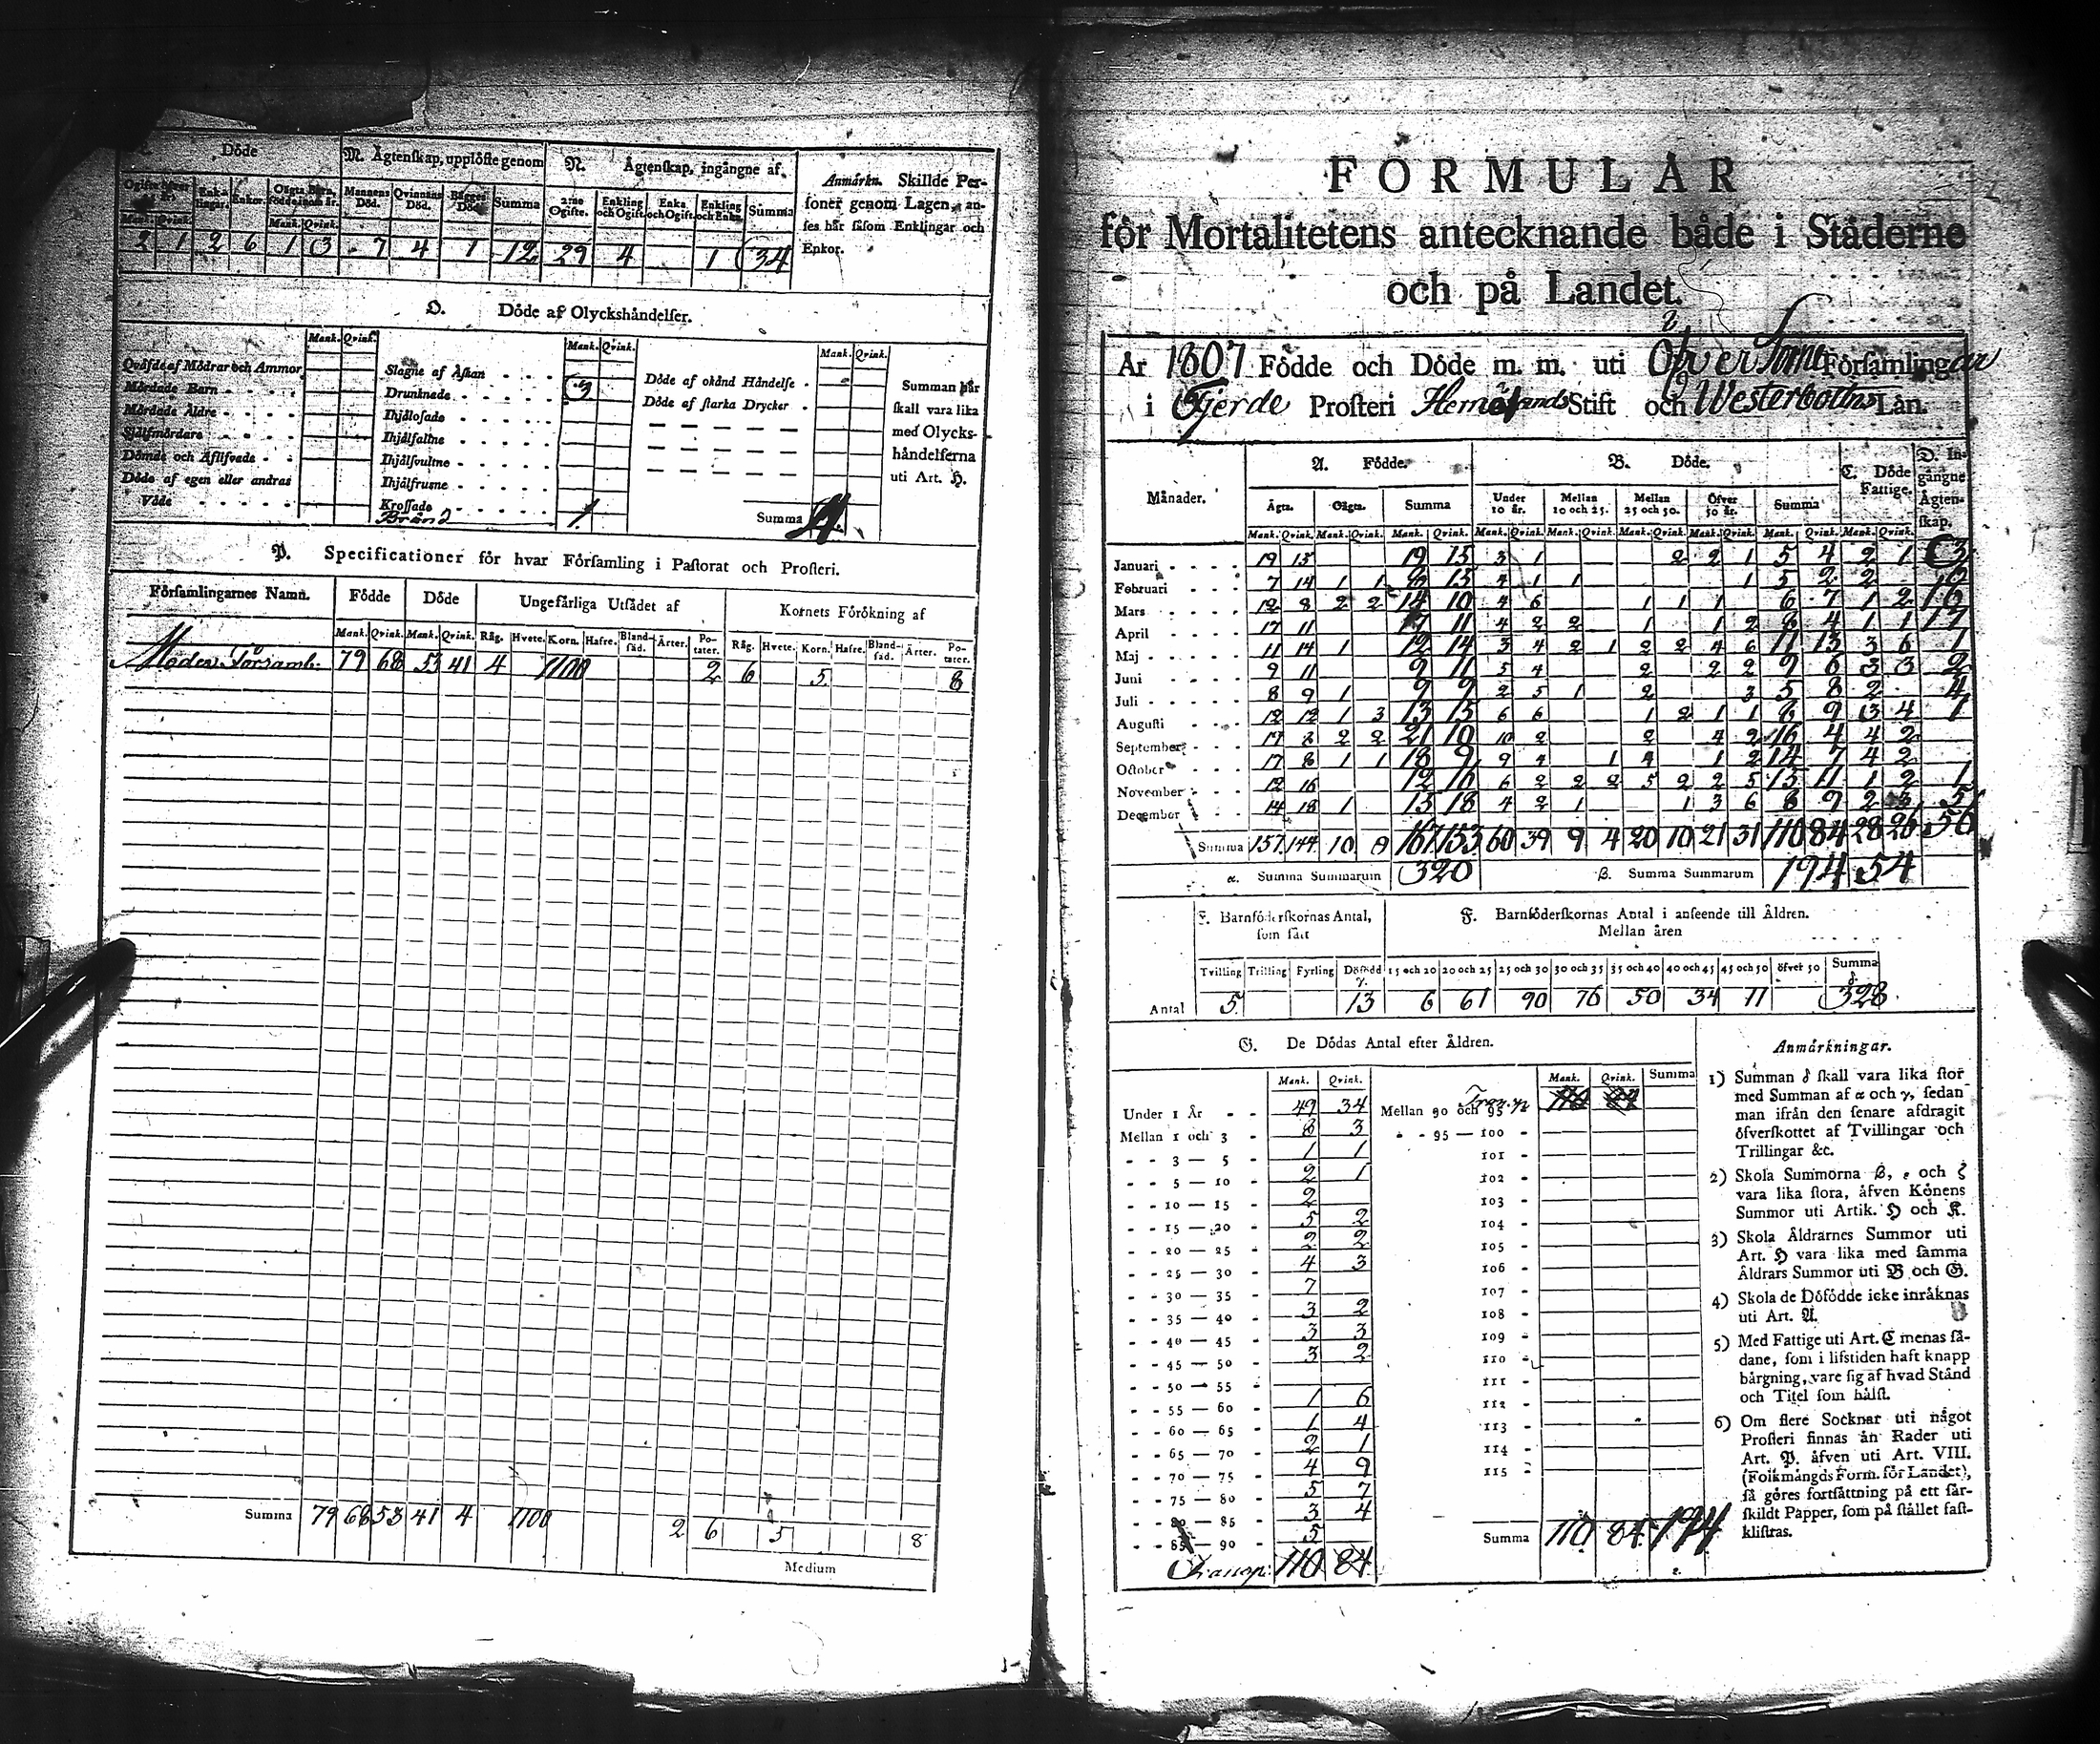 Döde
M. Ägtenskap, upplöste genom
N. Ägtenskap, ingångne af
Anmärkn. Skillde Personer genom Lagen, anses här såsom Enklingar och Enkor.
Enklingar. Enkor. Mannens Död. Qvinnans Död. Bägges Död. Summa 2:ne Ogifte. Enkling och Ogift. Enka och Ogift. Enkling och Enka. Summa
Mank. Qvink. Mank. Qvink.
2 1 2 6 1 3 7 4 1 12 29 4 1 34
O. Döde af Olyckshändelser.
Mank. Qvink. Mank. Qvink. Mank. Qvink.
Qväfde af Mödrar och Ammor
Mördade Barn
Mördade Äldre
Självmördare
Dömde och Aflifvade
Döde af egen eller andras Våde
Slagne af Åskan
Drunknade 3
Ihjälosade
Ihjälfallne
Ihjälsvultne
Ihjälfrusne
Krossade
Bränd 1
Döde af okänd Händelse
Döde af starka Drycker
Summa 4
Summan här skall vara lika med Olyckshändelserna uti Art. H.
P. Specificationer för hvar Församling i Pastorat och Prosteri.
Församlingarnes Namn. Födde Döde Ungefärliga Utsädet af Kornets Förökning af
Mank. Qvink. Mank. Qvink. Råg. Hvete. Korn. Hafre. Blandsäd. Ärter. Potater. Råg. Hvete. Korn. Hafre. Blandsäd. Ärter. Potater.
Moder Församl: 79 68 53 41 4 1100 2 6 5 8
Summa 79 68 53 41 4 1100 2 6 5 8
Medium
FORMULAR
för Mortalitetens antecknande både i Städerne
och på Landet.
År 1807 Födde och Döde m. m. uti Församlingar
i Prosteri Stift och Westerbottns Län.
Månader. A. Födde. B. Döde. C. Döde Fattige. D. Ingångne Ägtenskap.
Ägta. Oägta. Summa Under 10 år. Mellan 10 och 25. Mellan 25 och 50. Öfver 50 år. Summa
Mank. Qvink. Mank. Qvink. Mank. Qvink. Mank. Qvink. Mank. Qvink. Mank. Qvink. Mank. Qvink. Mank. Qvink. Mank. Qvink.
Januari 19 15 19 15 3 1 2 2 1 5 4 2 1
Februari 7 14 1 1 8 15 4 1 1 1 5 2 2
Mars 12 8 2 2 14 10 4 6 1 1 1 6 7 1 2
April 17 11 17 11 4 2 2 1 1 2 8 4 1 1 17
Maj 11 14 1 12 14 3 4 2 1 2 2 4 6 11 13 3 6 1
Juni 9 11 9 11 5 4 2 2 2 9 6 3 3 2
Juli 8 9 1 9 9 2 5 1 2 3 5 8 2 4
Augusti 12 12 1 3 13 15 6 6 1 2 1 1 8 9 3 4 1
September 2 2 21 10 10 2 2 4 2 16 4 4 2
October 17 8 1 1 18 9 9 4 1 4 1 2 14 7 4 2
November 12 16 12 16 6 2 2 2 5 2 2 5 15 11 1 2 1
December 14 18 1 15 18 4 2 1 1 3 6 8 9 2 3 5
Summa 157 144 10 9 167 153 60 39 9 4 20 10 21 31 110 84 28 26 56
α. Summa Summarum 320 β. Summa Summarum 194 54
E. Barnföderskornas Antal, som fått
F. Barnföderskornas Antal i anseende till Åldren.
Mellan åren
Tvilling Trilling Fyrling Döfödd γ. 15 och 20 20 och 25 25 och 30 30 och 35 35 och 40 40 och 45 45 och 50 öfver 50 Summa δ.
Antal 5 13 6 61 90 76 50 34 11 328
G. De Dödas Antal efter Åldren.
Mank. Qvink. Mank. Qvink. Summa
Under 1 År 49 34
Mellan 1 och 3 8 3
3 — 5 1 1
5 — 10 2 1
10 — 15 2
15 — 20 5 2
20 — 25 2 2
25 — 30 4 3
30 — 35 7
35 — 40 3 2
40 — 45 3 3
45 — 50 3 2
50 — 55
55 — 60 1 6
60 — 65 1 4
65 — 70 2 1
70 — 75 4 9
75 — 80 5 7
80 — 85 3 4
85 — 90 5
110 84
Mellan 90 och 95
95 — 100
101
102
103
104
105
106
107
108
109
110
111
112
113
114
115
Summa 110 84 194
Anmärkningar.
1) Summan δ skall vara lika stor
med Summan af α och γ, sedan
man ifrån den senare afdragit
öfverskottet af Tvillingar och
Trillingar &c.
2) Skola Summorna β, ε och ζ
vara lika stora, äfven Könens
Summor uti Artik. H och K.
3) Skola Åldrarnes Summor uti
Art. H vara lika med samma
Åldrars Summor uti B och G.
4) Skola de Döfödde icke inräknas
uti Art. A.
5) Med Fattige uti Art. C menas så-
dane, som i lifstiden haft knapp
bärgning, vare sig af hvad Stånd
och Titel som hälst.
6) Om flere Socknar uti något
Prosteri finnas än Rader uti
Art. P. äfven uti Art. VIII.
(Folkmängds Form. för Landet),
så göres fortsättning på ett sär-
skildt Papper, som på stället fast-
klistras.